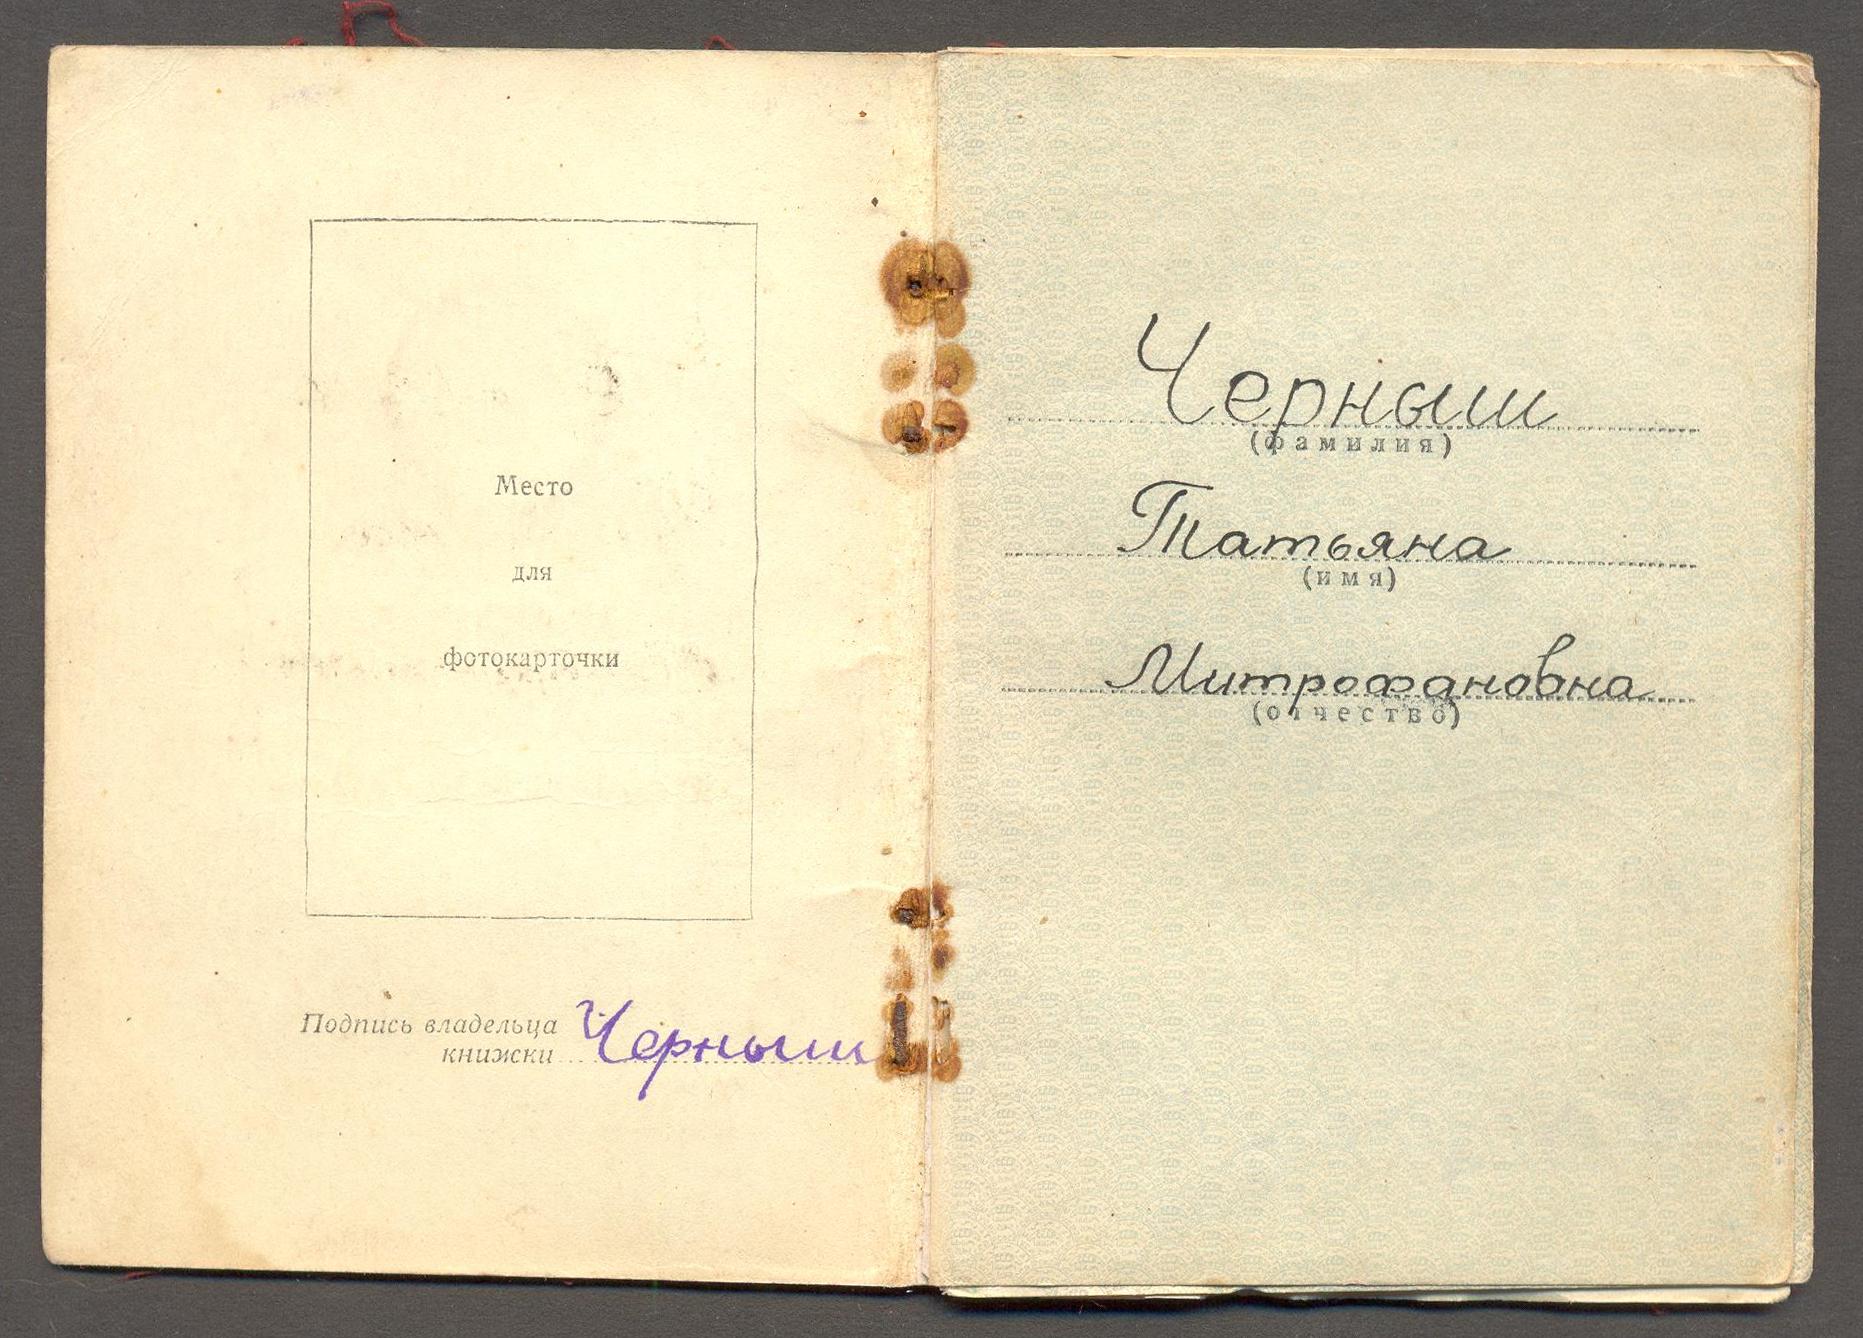 Место
для
фотокарточки
Подпись владельца
книжки Черныш
Черныш
(фамилия)
Татьяна
(имя)
Митрофановна
(отчество)